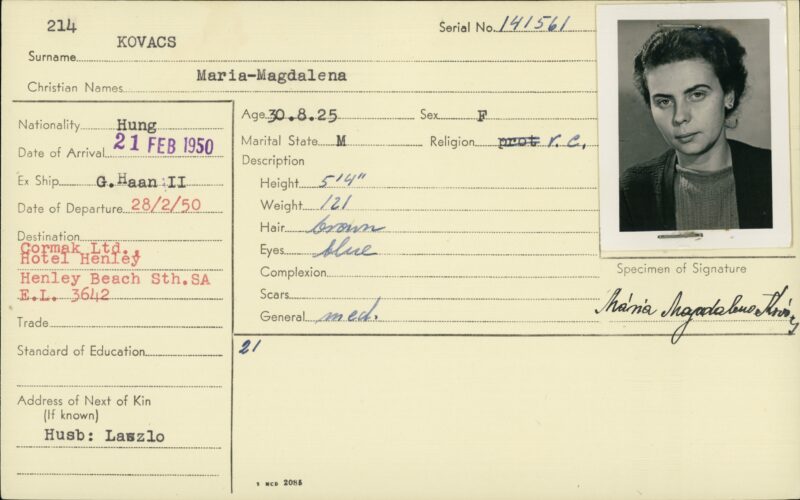 214
KOVACS
Serial No. 141561
Surname
Maria-Magdalena
Christian Names
Nationality Hung
Date of Arrival 21 FEB 1950
Ex Ship G.Haan II
Date of Departure 28/2/50
Destination
Cormak Ltd.,
Hotel Henley
Henley Beach Sth.SA
E.L. 3642
Trade
Standard of Education
Address of Next of Kin
(If known)
Husb: Laszlo
Age 30.8.25 Sex F
Marital State M Religion prot r.c.
Description
Height 5'4"
Weight 121
Hair brown
Eyes blue
Complexion
Scars
General med.
21
Specimen of Signature
Mária Magdalena Kovács
MCD 2085